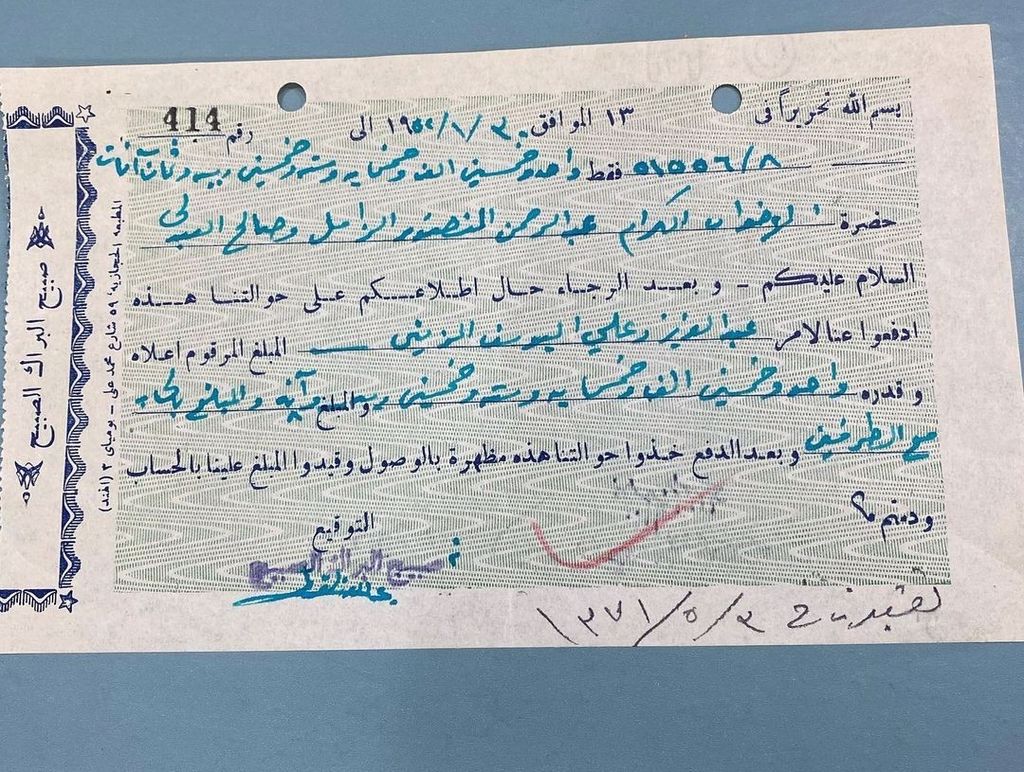 بسم الله تحريراً فى ١٣ الموافق ٣٠/١/١٩٥٢ الى رقم 414
٥١٥٥٦/٨ فقط واحد وخمسين الف وخمسمايه وسته وخمسين ربيه وثمان آنات
حضرة الاخوان الكرام عبدالرحمن المنصور الزامل وصالح
السلام عليكم - وبعد الرجاء حال اطلاعكم على حوالتنا هذه
ادفعوا عنا لامر عبدالعزيز وعلي اليوسف المزيني المبلغ المرقوم اعلاه
وقدره واحد وخمسين الف وخمسمايه وسته وخمسين ربيه وآنه والمبلغ
مع الطرفين وبعد الدفع خذوا حوالتنا هذه مظهرة بالوصول وقيدوا المبلغ علينا بالحساب
ودمتم
التوقيع
صبيح البراك الصبيح
٣/٥/١٣٧١
صبيح البراك الصبيح
المطبعه الحجازيه ٥٩ شارع محمد على - بومباى ٣ (الهند)